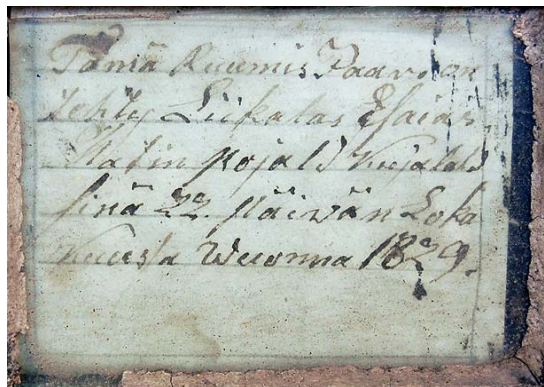 Tämä Ruumis Paari on
tehty Liikalas Esaias
Matin pojald Kujalald
sinä 22. päivän Loka
Kuusa Wuonna 1829.